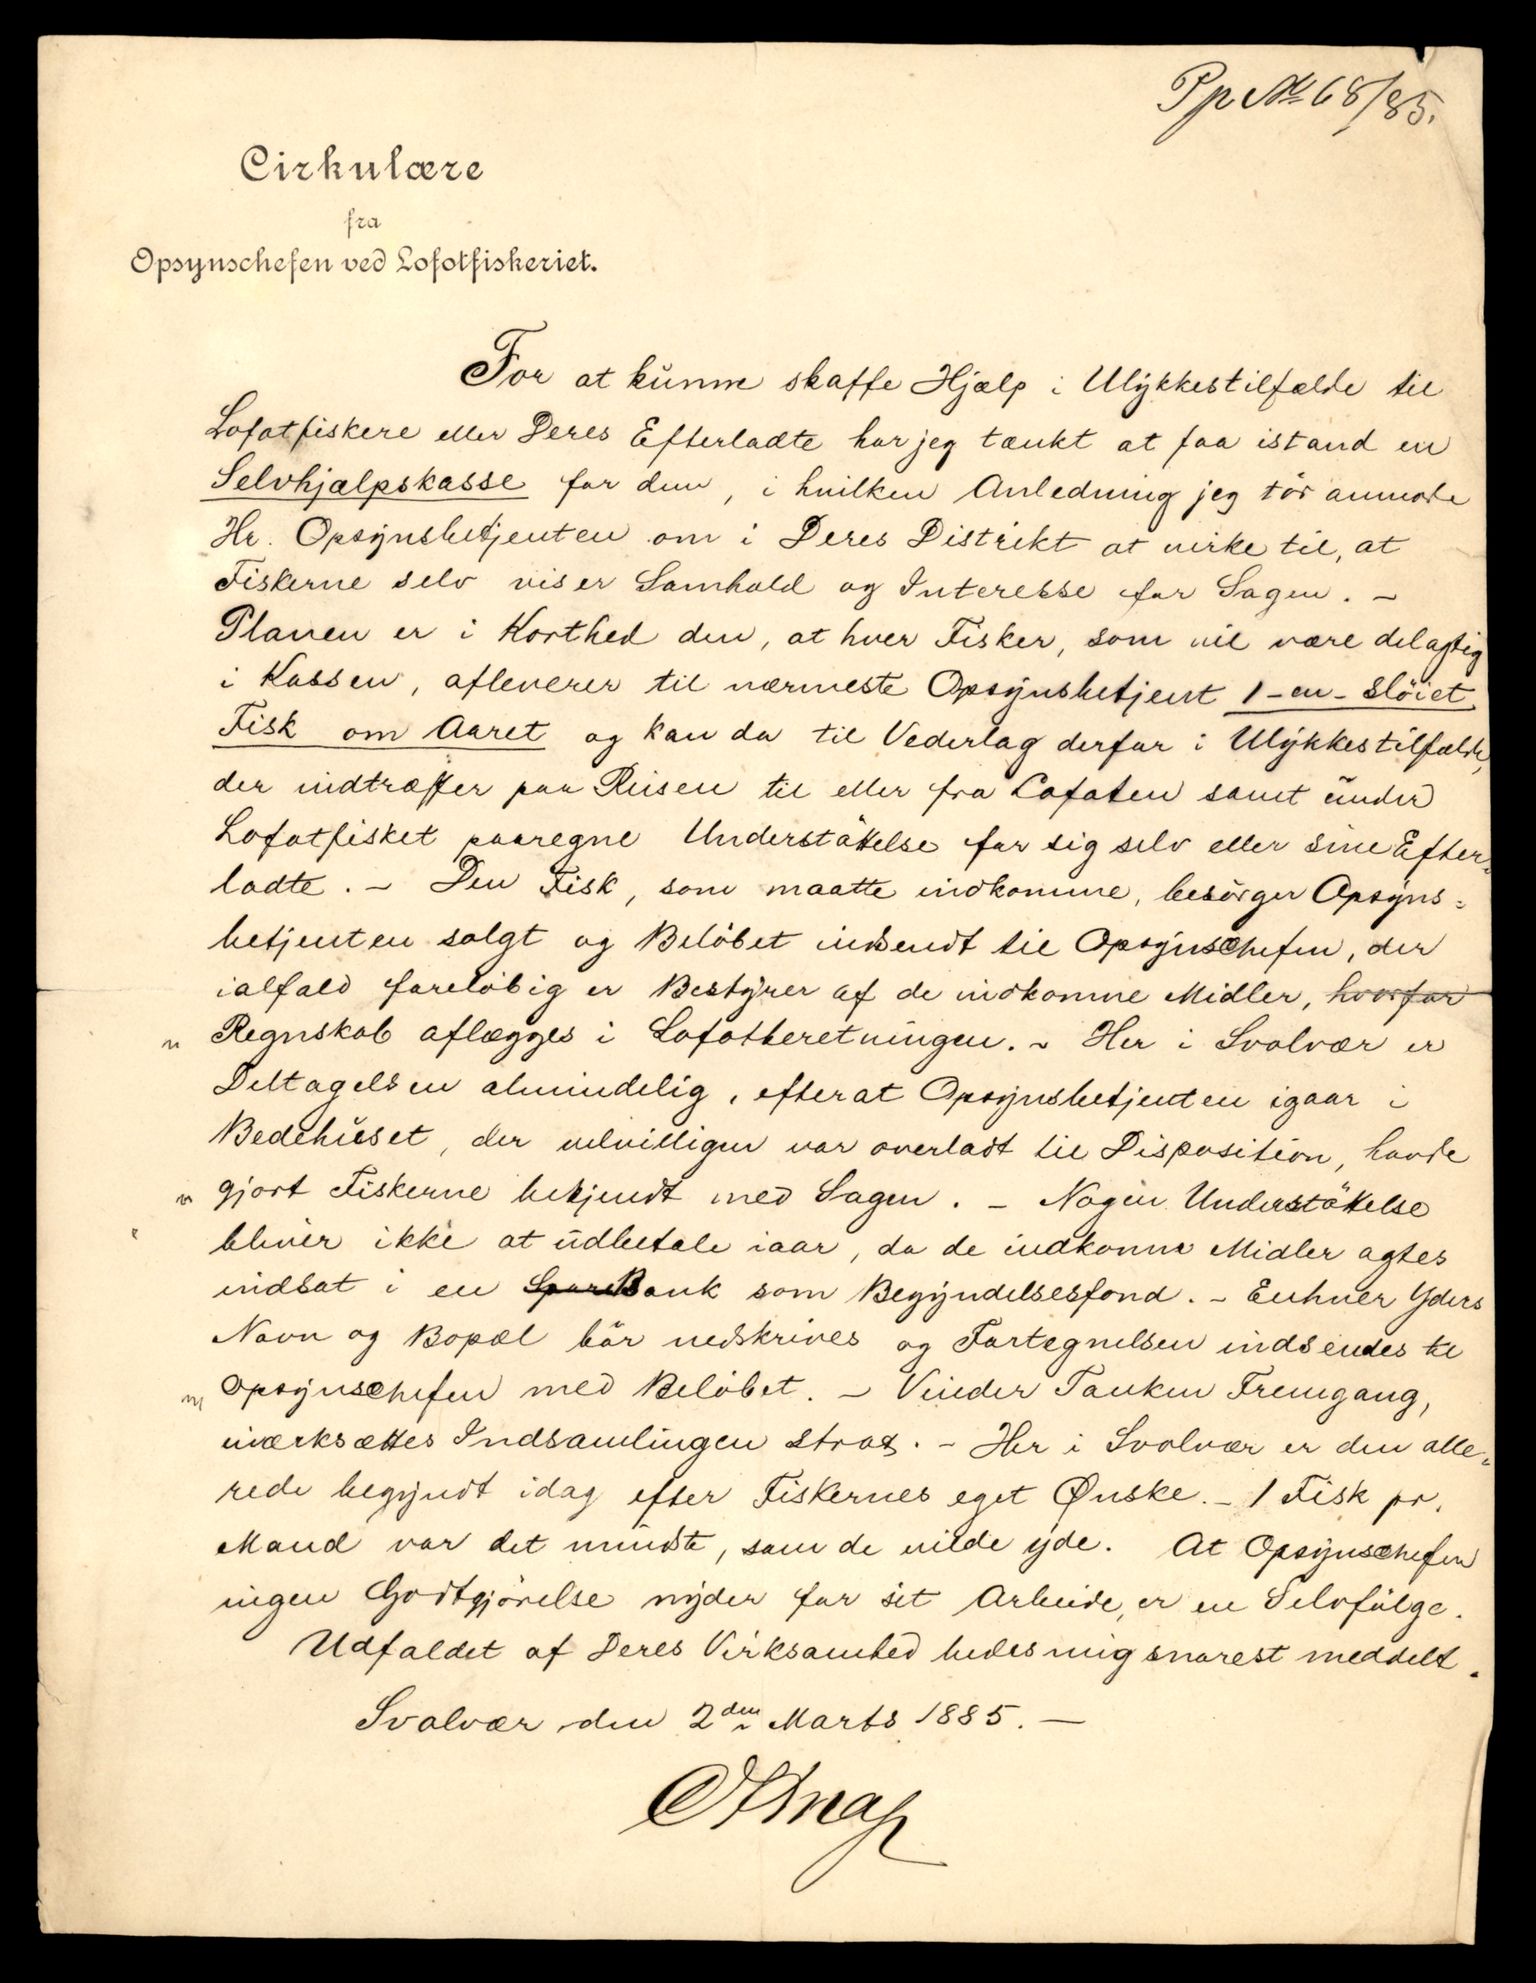 Pp № 68/85.
Cirkulære
fra
Opsynschefen ved Lofotfiskeriet.
For at kunne skaffe Hjælp i Ulykkestilfælde til
Lofotfiskere eller Deres Efterladte har jeg tænkt at faa istand en
Selvhjælpskasse for dem, i hvilken Anledning jeg tør anmode
Hr. Opsynsbetjenten om i Deres Distrikt at virke til, at
Fiskerne selv viser Samhold og Interesse for Sagen. –
Planen er i Korthed den, at hver Fisker, som vil være delagtig
i Kassen, afleverer til nærmeste Opsynsbetjent 1 – en – sløiet
Fisk om Aaret og kan da til Vederlag derfor i Ulykkestilfælde,
der indtræffer paa Reisen til eller fra Lofoten samt under
Lofotfisket paaregne Understøttelse for sig selv eller sine Efter-
ladte. – Den Fisk, som maatte indkomme, besørger Opsyns-
betjenten solgt og Beløbet indsendt til Opsynschefen, der
ialfald foreløbig er Bestyrer af de indkomne Midler, hvorfor
Regnskab aflægges i Lofotberetningen. – Her i Svolvær er
Deltagelsen almindelig, efterat Opsynsbetjenten igaar i
Bedehuset, der velvilligen var overladt til Disposition, havde
gjort Fiskerne bekjendt med Sagen. – Nogen Understøttelse
bliver ikke at udbetale iaar, da de indkomne Midler agtes
indsat i en Spare Bank som Begyndelsesfond. – Enhver Yders
Navn og Bopæl bør nedskrives og Fortegnelsen indsendes til
Opsynschefen med Beløbet. – Vinder Tanken Fremgang,
iværksættes Indsamlingen strax. – Her i Svolvær er den alle-
rede begyndt idag efter Fiskernes eget Ønske. – 1 Fisk pr.
Mand var det mindste, som de vilde yde. At Opsynschefen
ingen Godtgjørelse nyder for sit Arbeide, er en Selvfølge.
Udfaldet af Deres Virksamhed bedes mig snarest meddelt.
Svolvær den 2den Marts 1885. –